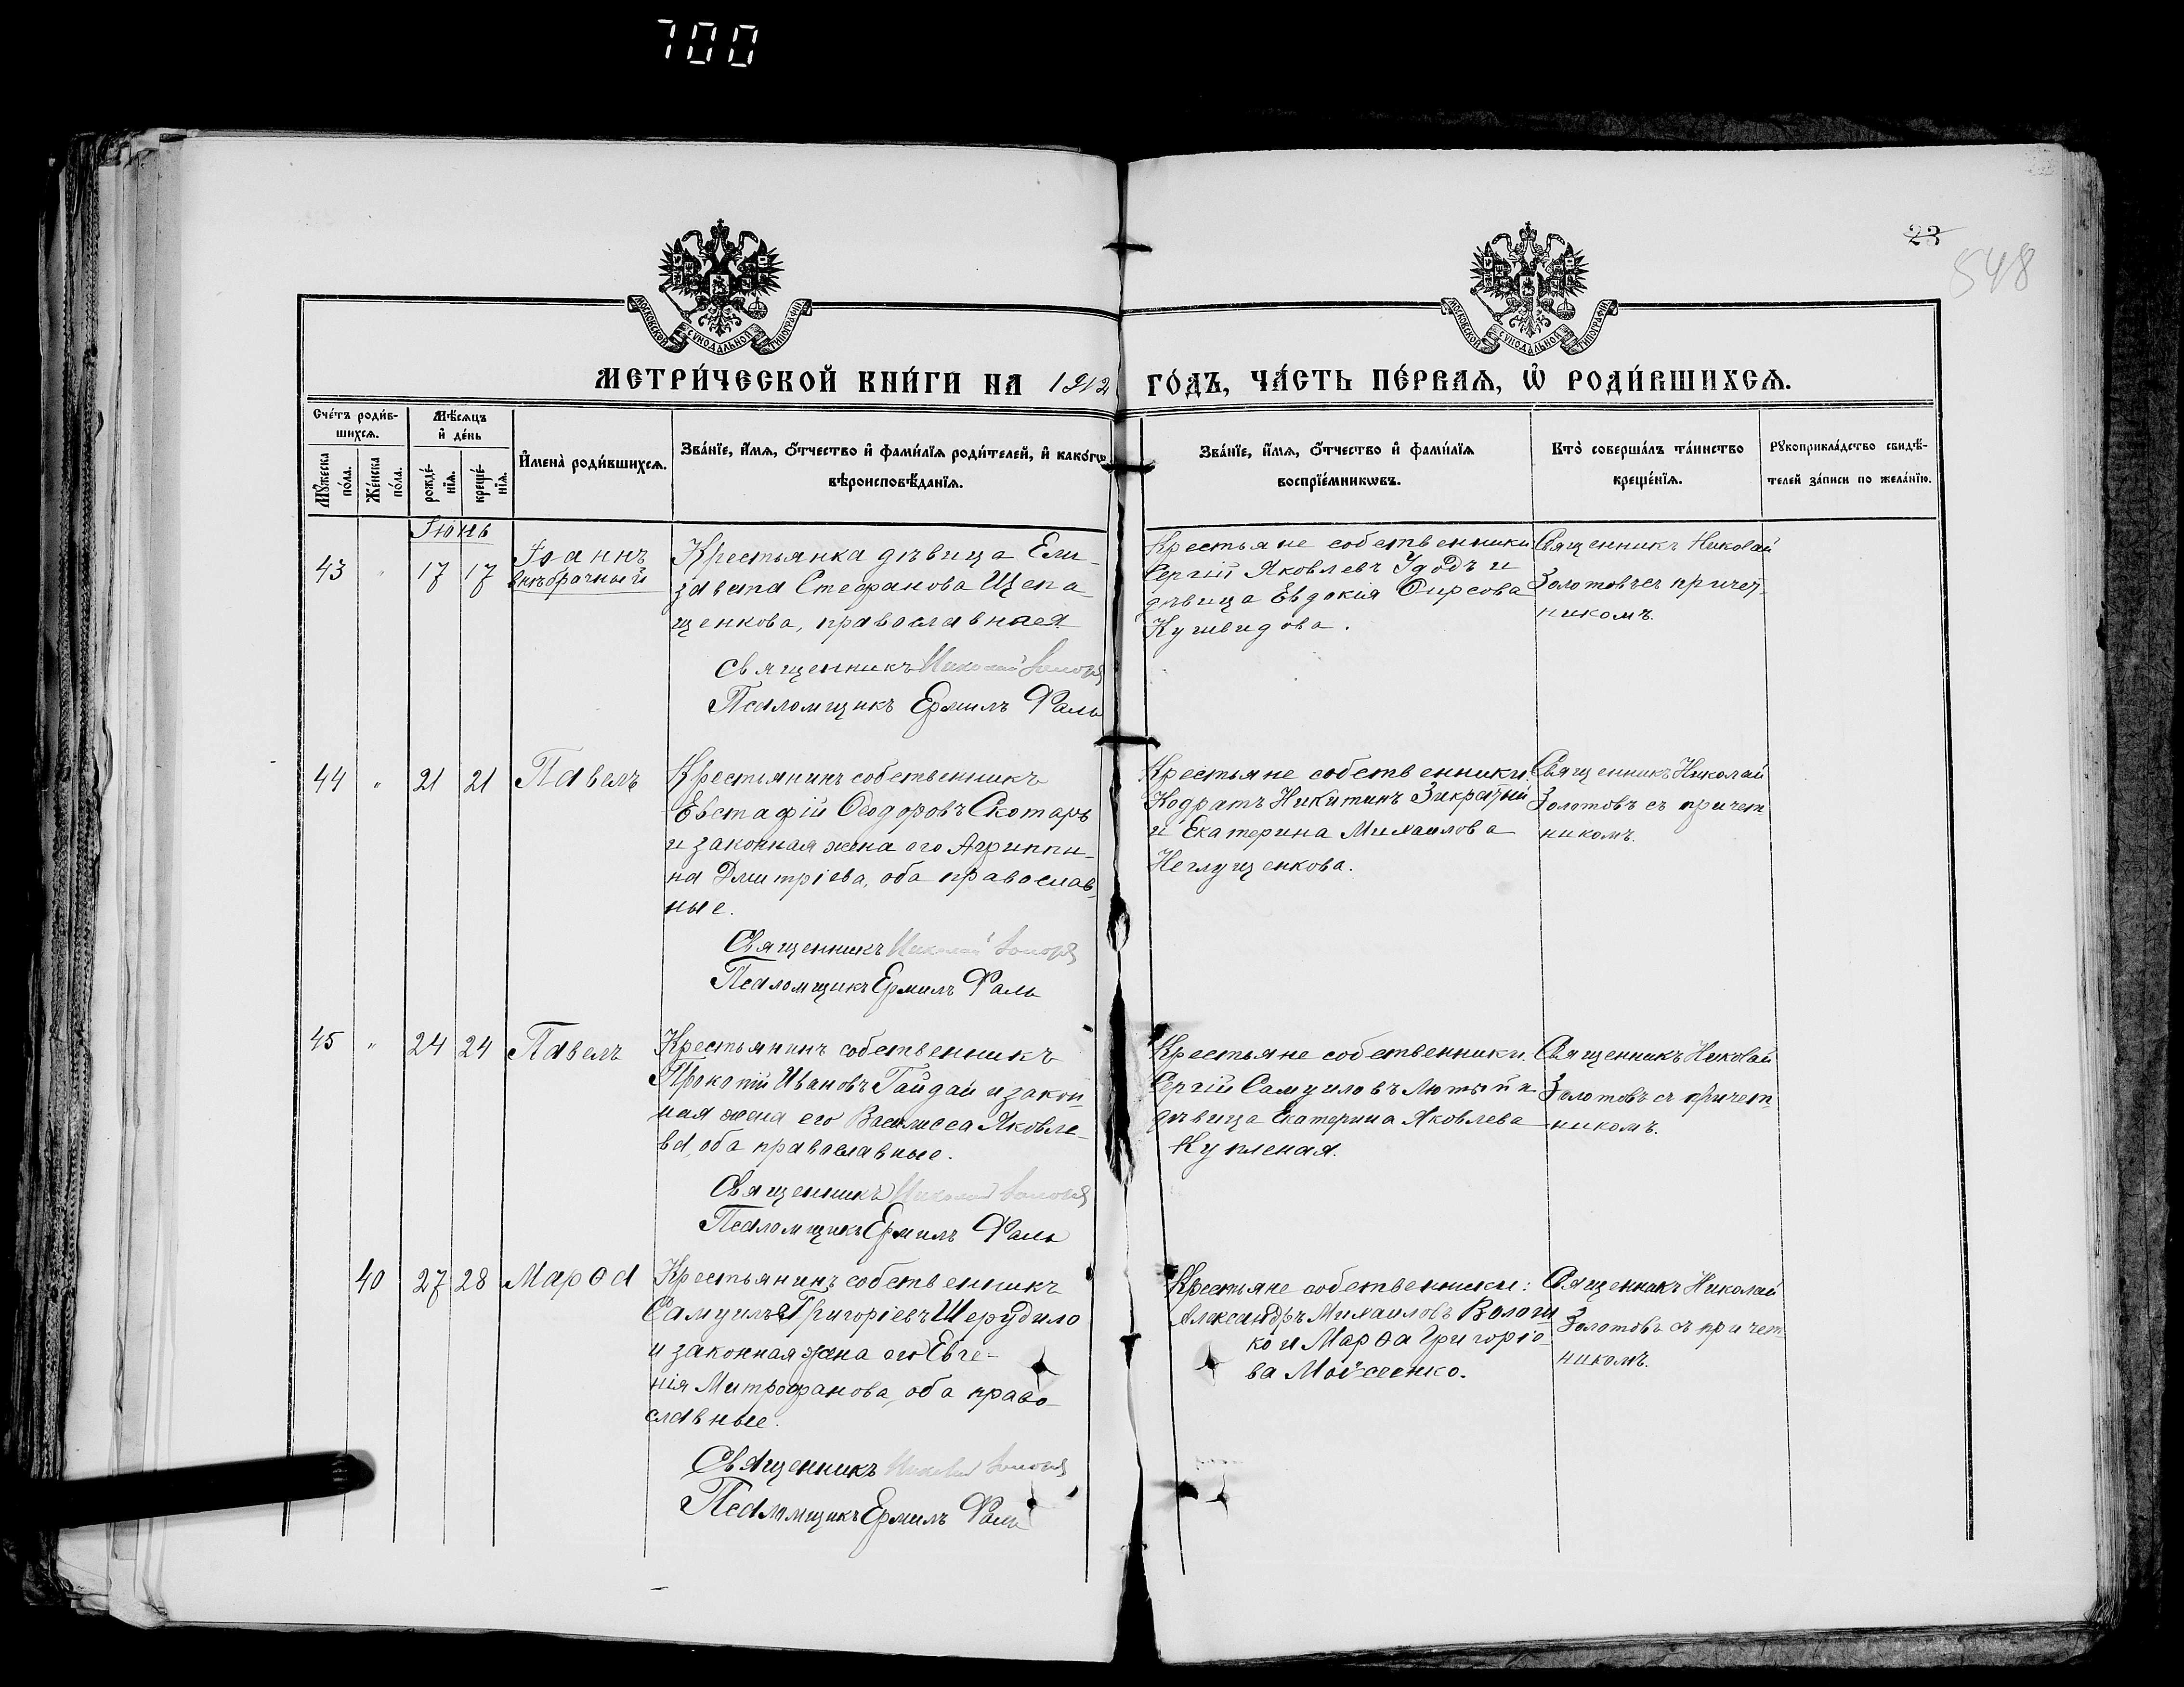 700
23
548
МОСКОВСКОЙ СѴНОДАЛЬНОЙ ТИПОГРАФІИ
МОСКОВСКОЙ СѴНОДАЛЬНОЙ ТИПОГРАФІИ
МЕТРИ́ЧЕСКОЙ КНИ́ГИ НА 1912 ГО́ДЪ, ЧА́СТЬ ПЕ́РВАѦ, Ѡ РОДИ́ВШИХСѦ.
Сче́тъ роди́в-
шихсѧ.
Мѣ́сѧцъ
и҆ де́нь
Мꙋ́жеска
по́ла.
Же́нска
по́ла.
рожде́-
нїѧ.
креще́-
нїѧ.
И҆мена̀ роди́вшихсѧ.
Зва́нїе, и҆́мѧ, ѻ҆́тчество и҆ фами́лїѧ роди́телей, и҆ како́гѡ
вѣроисповѣ́данїѧ.
Зва́нїе, и҆́мѧ, ѻ҆́тчество и҆ фами́лїѧ
воспрїе́мникѡвъ.
Кто̀ соверша́лъ та́инство
креще́нїѧ.
Рꙋкоприкла́дство свидѣ́-
телей за́писи по жела́нїю.
Іюнь
43 " 17 17 Іоаннъ
внѣбрачный
Крестьянка дѣвица Ели-
завета Стефанова Щепа-
щенкова, православная
Священникъ Николай Золотовъ
Псаломщикъ Ермилъ Фаль
Крестьяне собственники
Сергій Яковлевъ Удодъ и
дѣвица Евдокія Фирсова
Кушвидова.
Священникъ Николай
Золотовъ съ причет-
никомъ.
44 " 21 21 Павелъ
Крестьянинъ собственникъ
Евстафій Ѳеодоровъ Скотарь
и законная жена его Агриппи-
на Дмитріева, оба православ-
ные.
Священникъ Николай Золотовъ
Псаломщикъ Ермилъ Фаль
Крестьяне собственники:
Кодратъ Никитинъ Закратный
и Екатерина Михаилова
Неглущенкова.
Священникъ Николай
Золотовъ съ причет
никомъ.
45 " 24 24 Павелъ
Крестьянинъ собственникъ
Прокопій Ивановъ Гайдай и закон-
ная жена его Василисса Яковле-
ва, оба православные.
Священникъ Николай Золотовъ
Псаломщикъ Ермилъ Фаль
Крестьяне собственники.
Сергій Самуиловъ Лютый и
дѣвица Екатерина Яковлева
Купленая.
Священникъ Николай
Золотовъ съ причет-
никомъ.
40 27 28 Марѳа
Крестьянинъ собственникъ
Самуилъ Григоріевъ Шерудило
и законная жена его Евге-
нія Митрофанова, оба право-
славные.
Священникъ Николай Золотовъ
Псаломщикъ Ермилъ Фаль
Крестьяне собственники:
Александръ Михаиловъ Волош
ко и Марѳа Григоріе-
ва Мойсеенко.
Священникъ Николай
Золотовъ съ причет
никомъ.